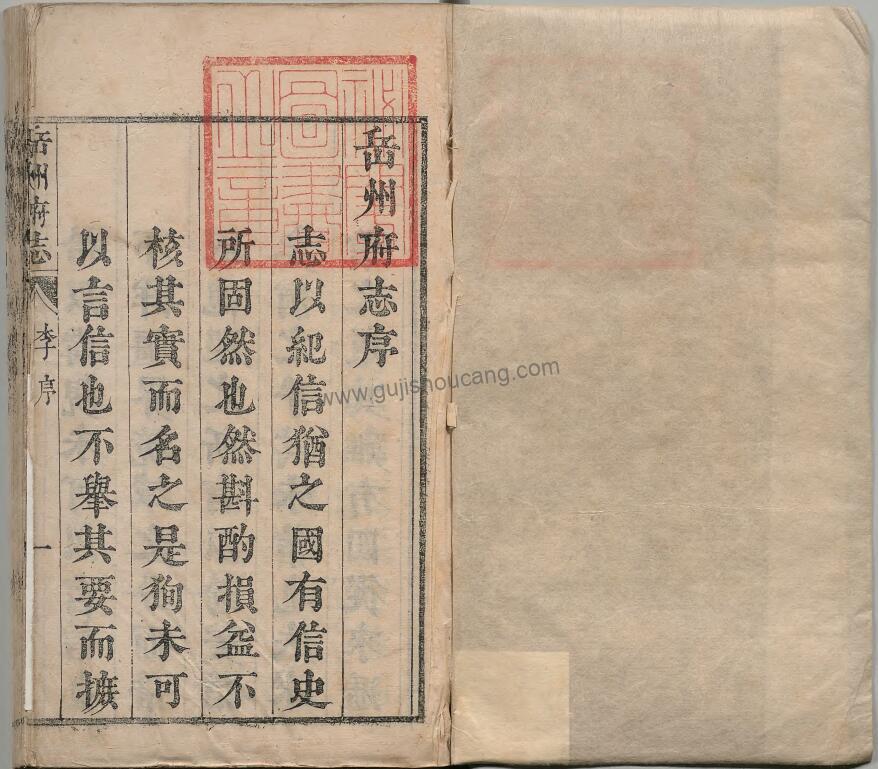 岳州府志序
志以紀信猶之國有信史
所固然也然斟酌損益不
核其實而名之是狥未可
以言信也不舉其要而摭
岳州府志
李序
一
www.gujishoucang.com